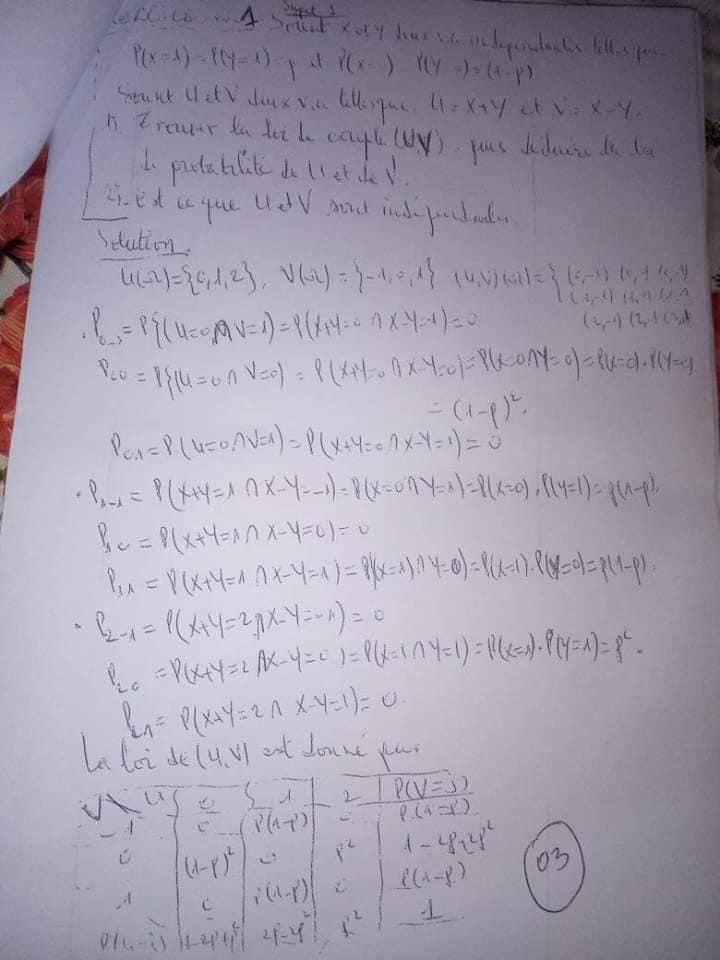 Sujet 1
Exercice n° 1 Soient X et Y deux v.a indépendantes telles que
P(X=1)=P(Y=1)=p et P(X=0) P(Y=0)=(1-p)
Soient U et V deux v.a telles que. U=X+Y et V=X-Y.
1) Trouver la loi de couple (U,V), puis déduire la loi
de probabilité de U et de V.
2) Est ce que U et V sont indépendantes.
Solution.
U(Ω)={0,1,2}, V(Ω)={-1,0,1} (U,V)(Ω)={(0,-1)
P0-1=P{(U=0∩V=1)=P(X+Y=0∩X-Y=-1)=0
P00=P{(U=0∩V=0)=P(X+Y=0∩X-Y=0)=P(X=0∩Y=0)=P(X=0).P(Y=0)
=(1-p)².
P01=P(U=0∩V=1)=P(X+Y=0∩X-Y=1)=0
P1-1=P(X+Y=1∩X-Y=-1)=P(X=0∩Y=1)=P(X=0).P(Y=1)=p(1-p).
P10=P(X+Y=1∩X-Y=0)=0
P11=P(X+Y=1∩X-Y=1)=P(X=1)∩Y=0)=P(X=1).P(Y=0)=p(1-p).
P2-1=P(X+Y=2∩X-Y=-1)=0
P20=P(X+Y=2∩X-Y=0)=P(X=1∩Y=1)=P(X=1).P(Y=1)=p².
P21=P(X+Y=2∩X-Y=1)=0.
La loi de (U,V) est donné par
V\U 0 1 2 P(V=j)
-1 0 p(1-p) 0 p(1-p)
0 (1-p)² 0 p² 1-2p+2p²
1 0 p(1-p) 0 p(1-p)
P(U=i) 1-2p+p² 2p-2p² p² 1
03